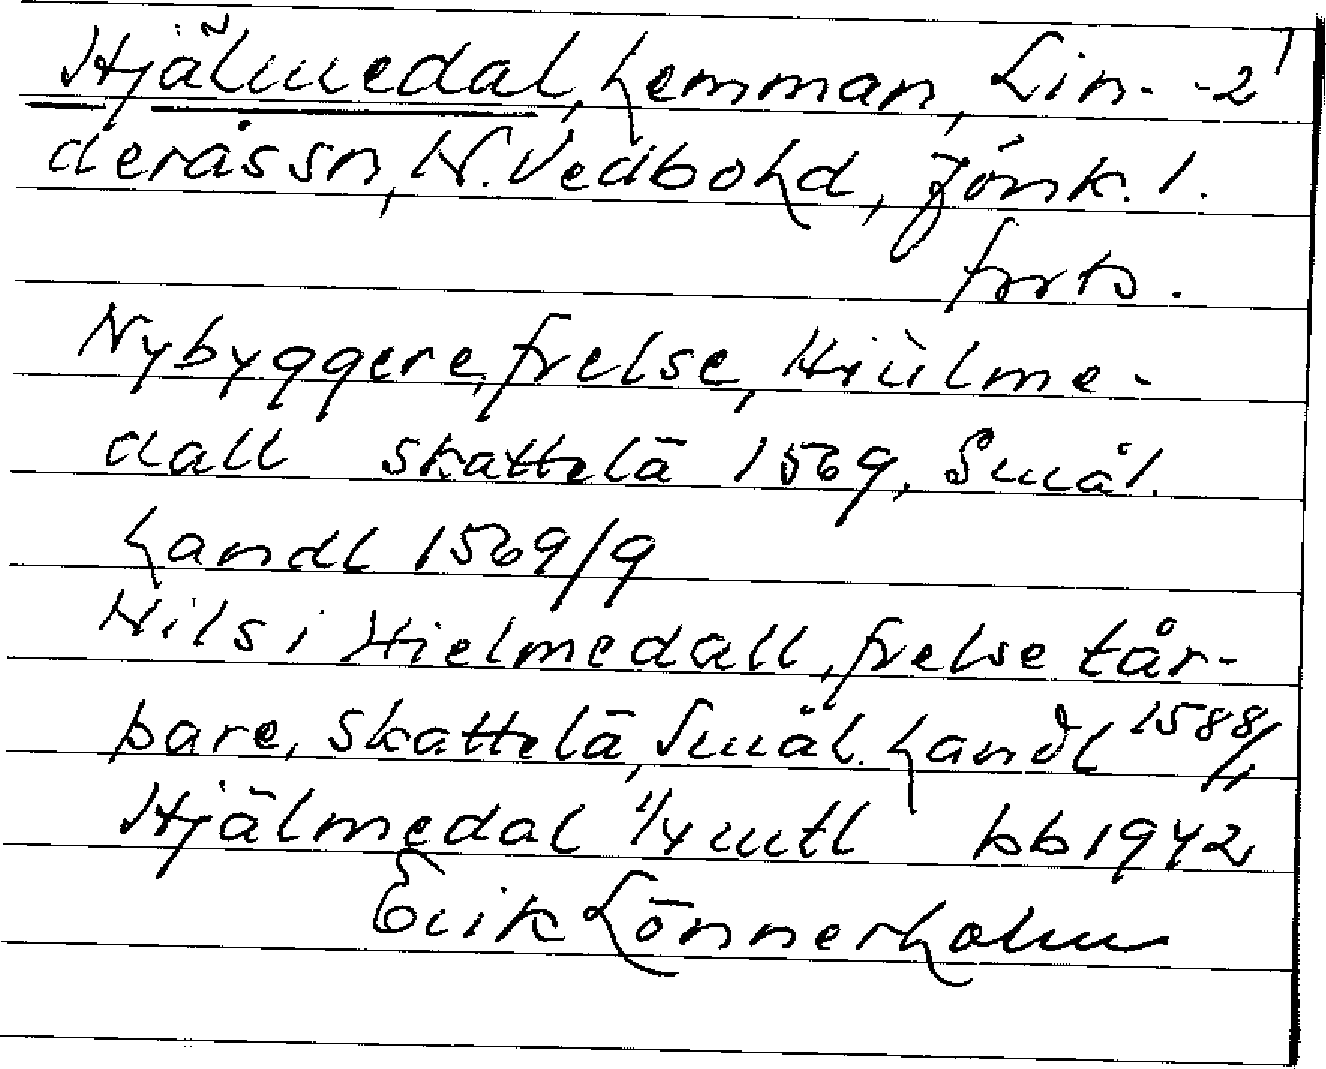 Hjälmedal, hemman, Lin- -2'
derås sn, N. Vedbo hd, Jönk. l.
forts.
Nybyggere, frelse, Hiülme-
dall skattelä 1569, Smål.
handl 1569/9
Nils i Hielmedall, frelse tår-
pare, skattelä, Smål. handl 1588/11
Hjälmedal 1/4 mtl bb 1942
Erik Lönnerholm